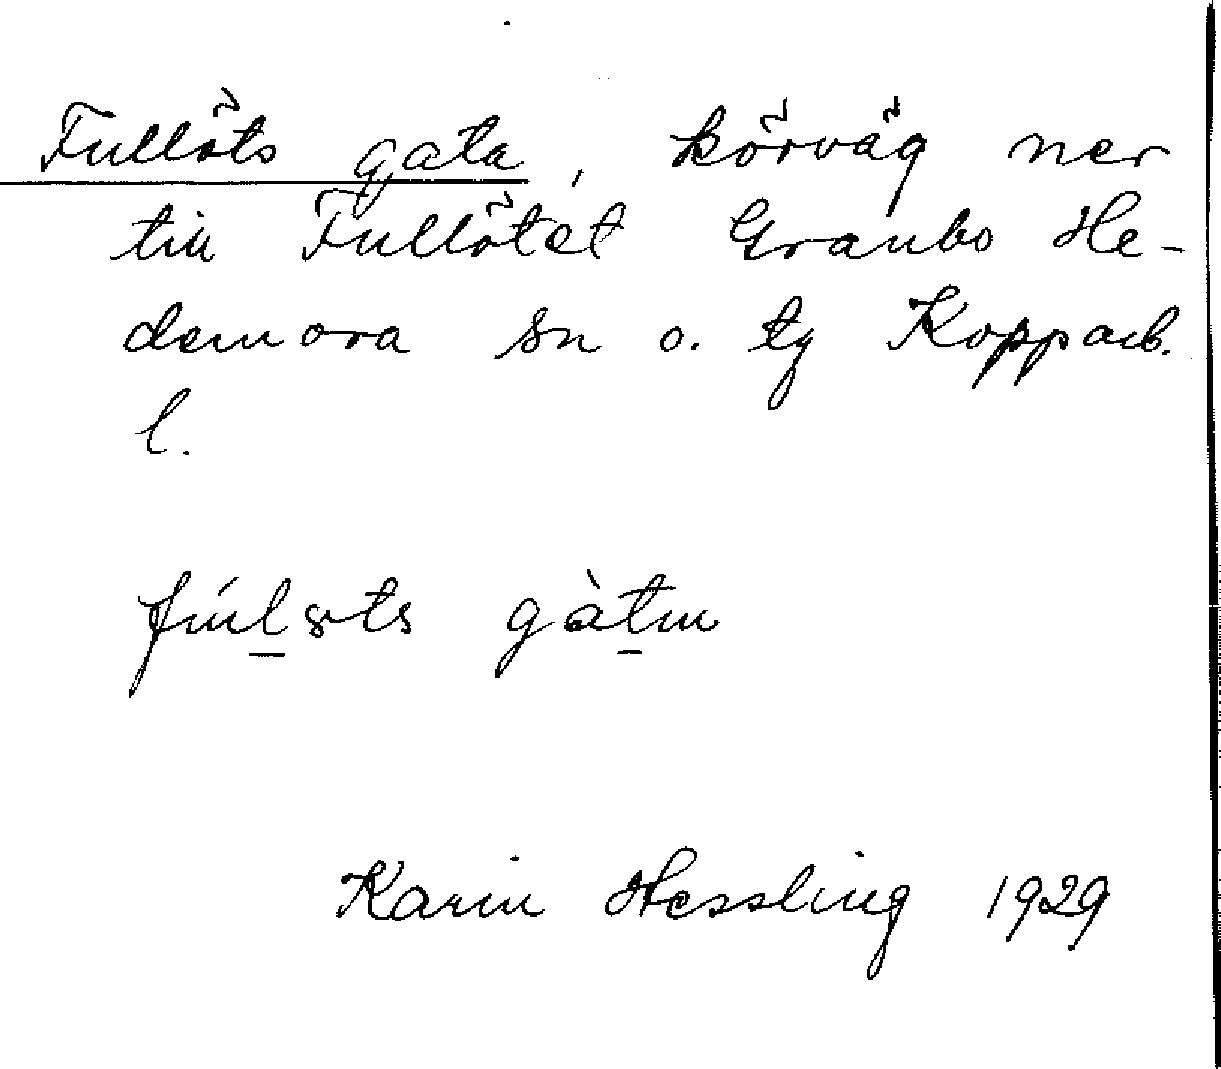 Fullöts gata, körväg ner
till Fullötet Graubo He-
demora sn o. tg Kopparb.
l.
gàtɯ
Karin Hessling 1929